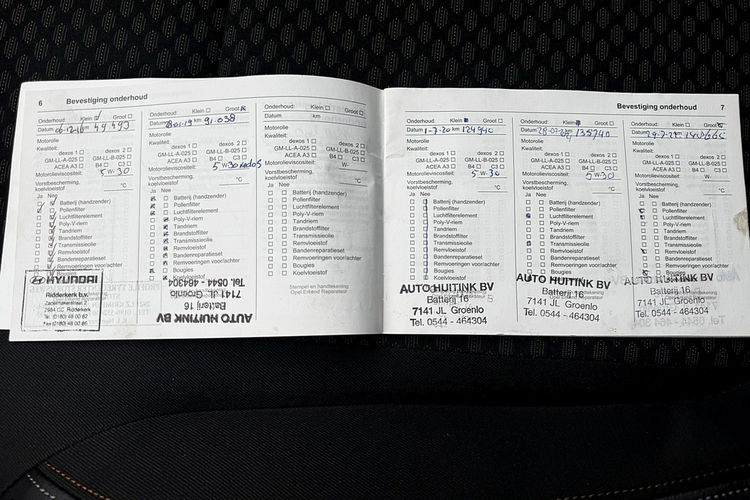 6 Bevestiging onderhoud
Onderhoud: Klein Groot
Datum 06-12-16 km
Motorolie
Kwaliteit:
dexos 1 dexos 2
GM-LL-A-025 GM-LL-B-025
ACEA A3 B4 C3
Motorolieviscositeit: 5 W-30
Vorstbescherming, °C
koelvloeistof
Ja Nee
Batterij (handzender)
Pollenfilter
Luchtfilterelement
Poly-V-riem
Tandriem
Brandstoffilter
Transmissieolie
Remvloeistof
Bandenreparatieset
Remvoeringen voor/achter
HYUNDAI
Ridderkerk b.v.
2984 CC Ridderkerk
Onderhoud: Klein Groot
Datum km 91.038
Motorolie
Kwaliteit:
dexos 1 dexos 2
GM-LL-A-025 GM-LL-B-025
ACEA A3 B4 C3
Motorolieviscositeit: 5 W-30
Vorstbescherming, °C
koelvloeistof
Ja Nee
Batterij (handzender)
Pollenfilter
Luchtfilterelement
Poly-V-riem
Tandriem
Brandstoffilter
Transmissieolie
Remvloeistof
Bandenreparatieset
Remvoeringen voor/achter
Bougies
Koelvloeistof
AUTO HUITINK BV
Batterij 16
7141 JL Groenlo
Tel. 0544 - 464304
Onderhoud: Klein Groot
Datum km
Motorolie
Kwaliteit:
dexos 1 dexos 2
GM-LL-A-025 GM-LL-B-025
ACEA A3 B4 C3
Motorolieviscositeit: W-
Vorstbescherming, °C
koelvloeistof
Ja Nee
Batterij (handzender)
Pollenfilter
Luchtfilterelement
Poly-V-riem
Tandriem
Brandstoffilter
Transmissieolie
Remvloeistof
Bandenreparatieset
Remvoeringen voor/achter
Bougies
Koelvloeistof
Stempel en handtekening
Opel Erkend Reparateur
Bevestiging onderhoud 7
Onderhoud: Klein Groot
Datum 1-7-20 km 124940
Motorolie
Kwaliteit:
dexos 1 dexos 2
GM-LL-A-025 GM-LL-B-025
ACEA A3 B4 C3
Motorolieviscositeit: 5 W-30
Vorstbescherming, °C
koelvloeistof
Ja Nee
Batterij (handzender)
Pollenfilter
Luchtfilterelement
Poly-V-riem
Tandriem
Brandstoffilter
Transmissieolie
Remvloeistof
Bandenreparatieset
Remvoeringen voor/achter
Bougies
Koelvloeistof
AUTO HUITINK BV
Batterij 16
7141 JL Groenlo
Tel. 0544 - 464304
Onderhoud: Klein Groot
Datum 135740
Motorolie
Kwaliteit:
dexos 1 dexos 2
GM-LL-A-025 GM-LL-B-025
ACEA A3 B4 C3
Motorolieviscositeit: 5 W-30
Vorstbescherming, °C
koelvloeistof
Ja Nee
Batterij (handzender)
Pollenfilter
Luchtfilterelement
Poly-V-riem
Tandriem
Brandstoffilter
Transmissieolie
Remvloeistof
Bandenreparatieset
Remvoeringen voor/achter
Bougies
AUTO HUITINK BV
Batterij 16
7141 JL Groenlo
Tel. 0544 - 464304
Onderhoud: Klein Groot
Datum
Motorolie
Kwaliteit:
dexos 1 dexos 2
GM-LL-A-025 GM-LL-B-025
ACEA A3 B4 C3
Motorolieviscositeit: W-
Vorstbescherming, °C
koelvloeistof
Ja Nee
Batterij (handzender)
Pollenfilter
Luchtfilterelement
Poly-V-riem
Tandriem
Brandstoffilter
Transmissieolie
Remvloeistof
Bandenreparatieset
Remvoeringen voor/achter
Bougies
AUTO HUITINK BV
Batterij 16
7141 JL Groenlo
Tel. 0544 - 464304